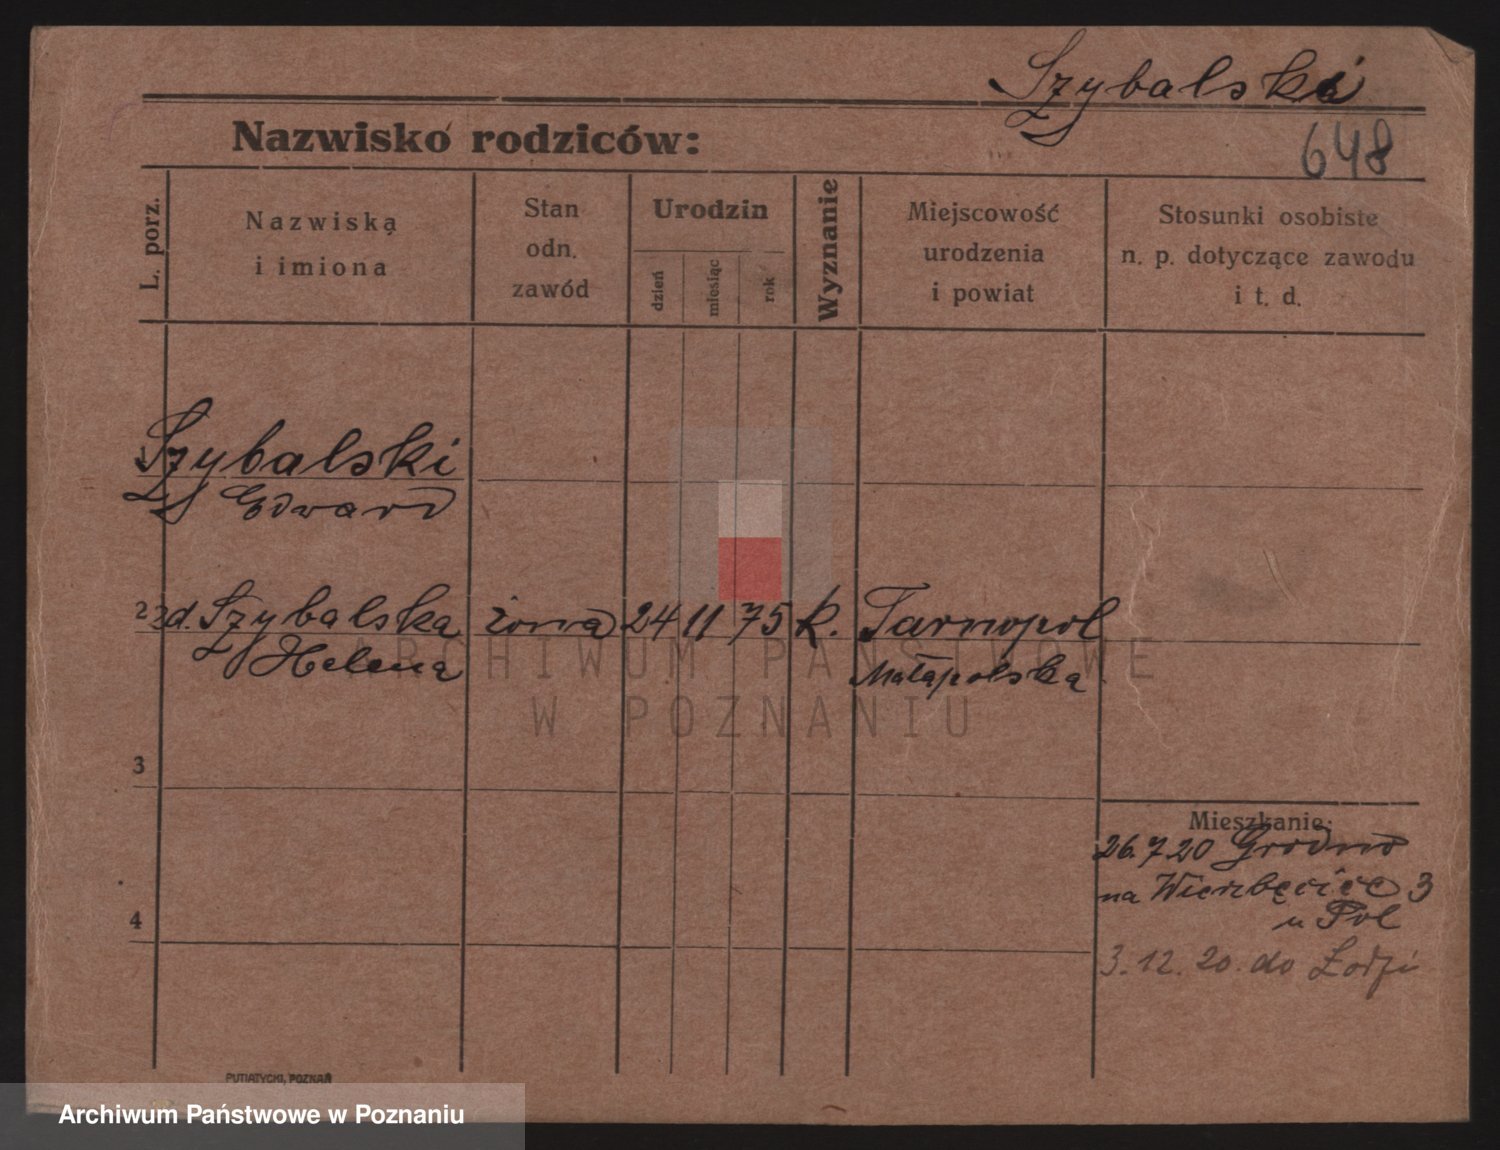 Szybalski
Nazwisko rodziców:
648
L. porz.
Nazwiska
i imiona
Stan
odn.
zawód
Urodzin
dzień
miesiąc
rok
Wyznanie
Miejscowość
urodzenia
i powiat
Stosunki osobiste
n. p. dotyczące zawodu
i t. d.
Szybalski
Edward
2 zd. Szybalska żona 24 11 75 k. Tarnopol
Helena Małopolska
ARCHIWUM PAŃSTWOWE
W POZNANIU
3
Mieszkanie:
26.7.20 Grodno
na Wierzbięcice 3
u Pol
4
3.12.20. do Łodzi
PUTIATYCKI, POZNAŃ
Archiwum Państwowe w Poznaniu